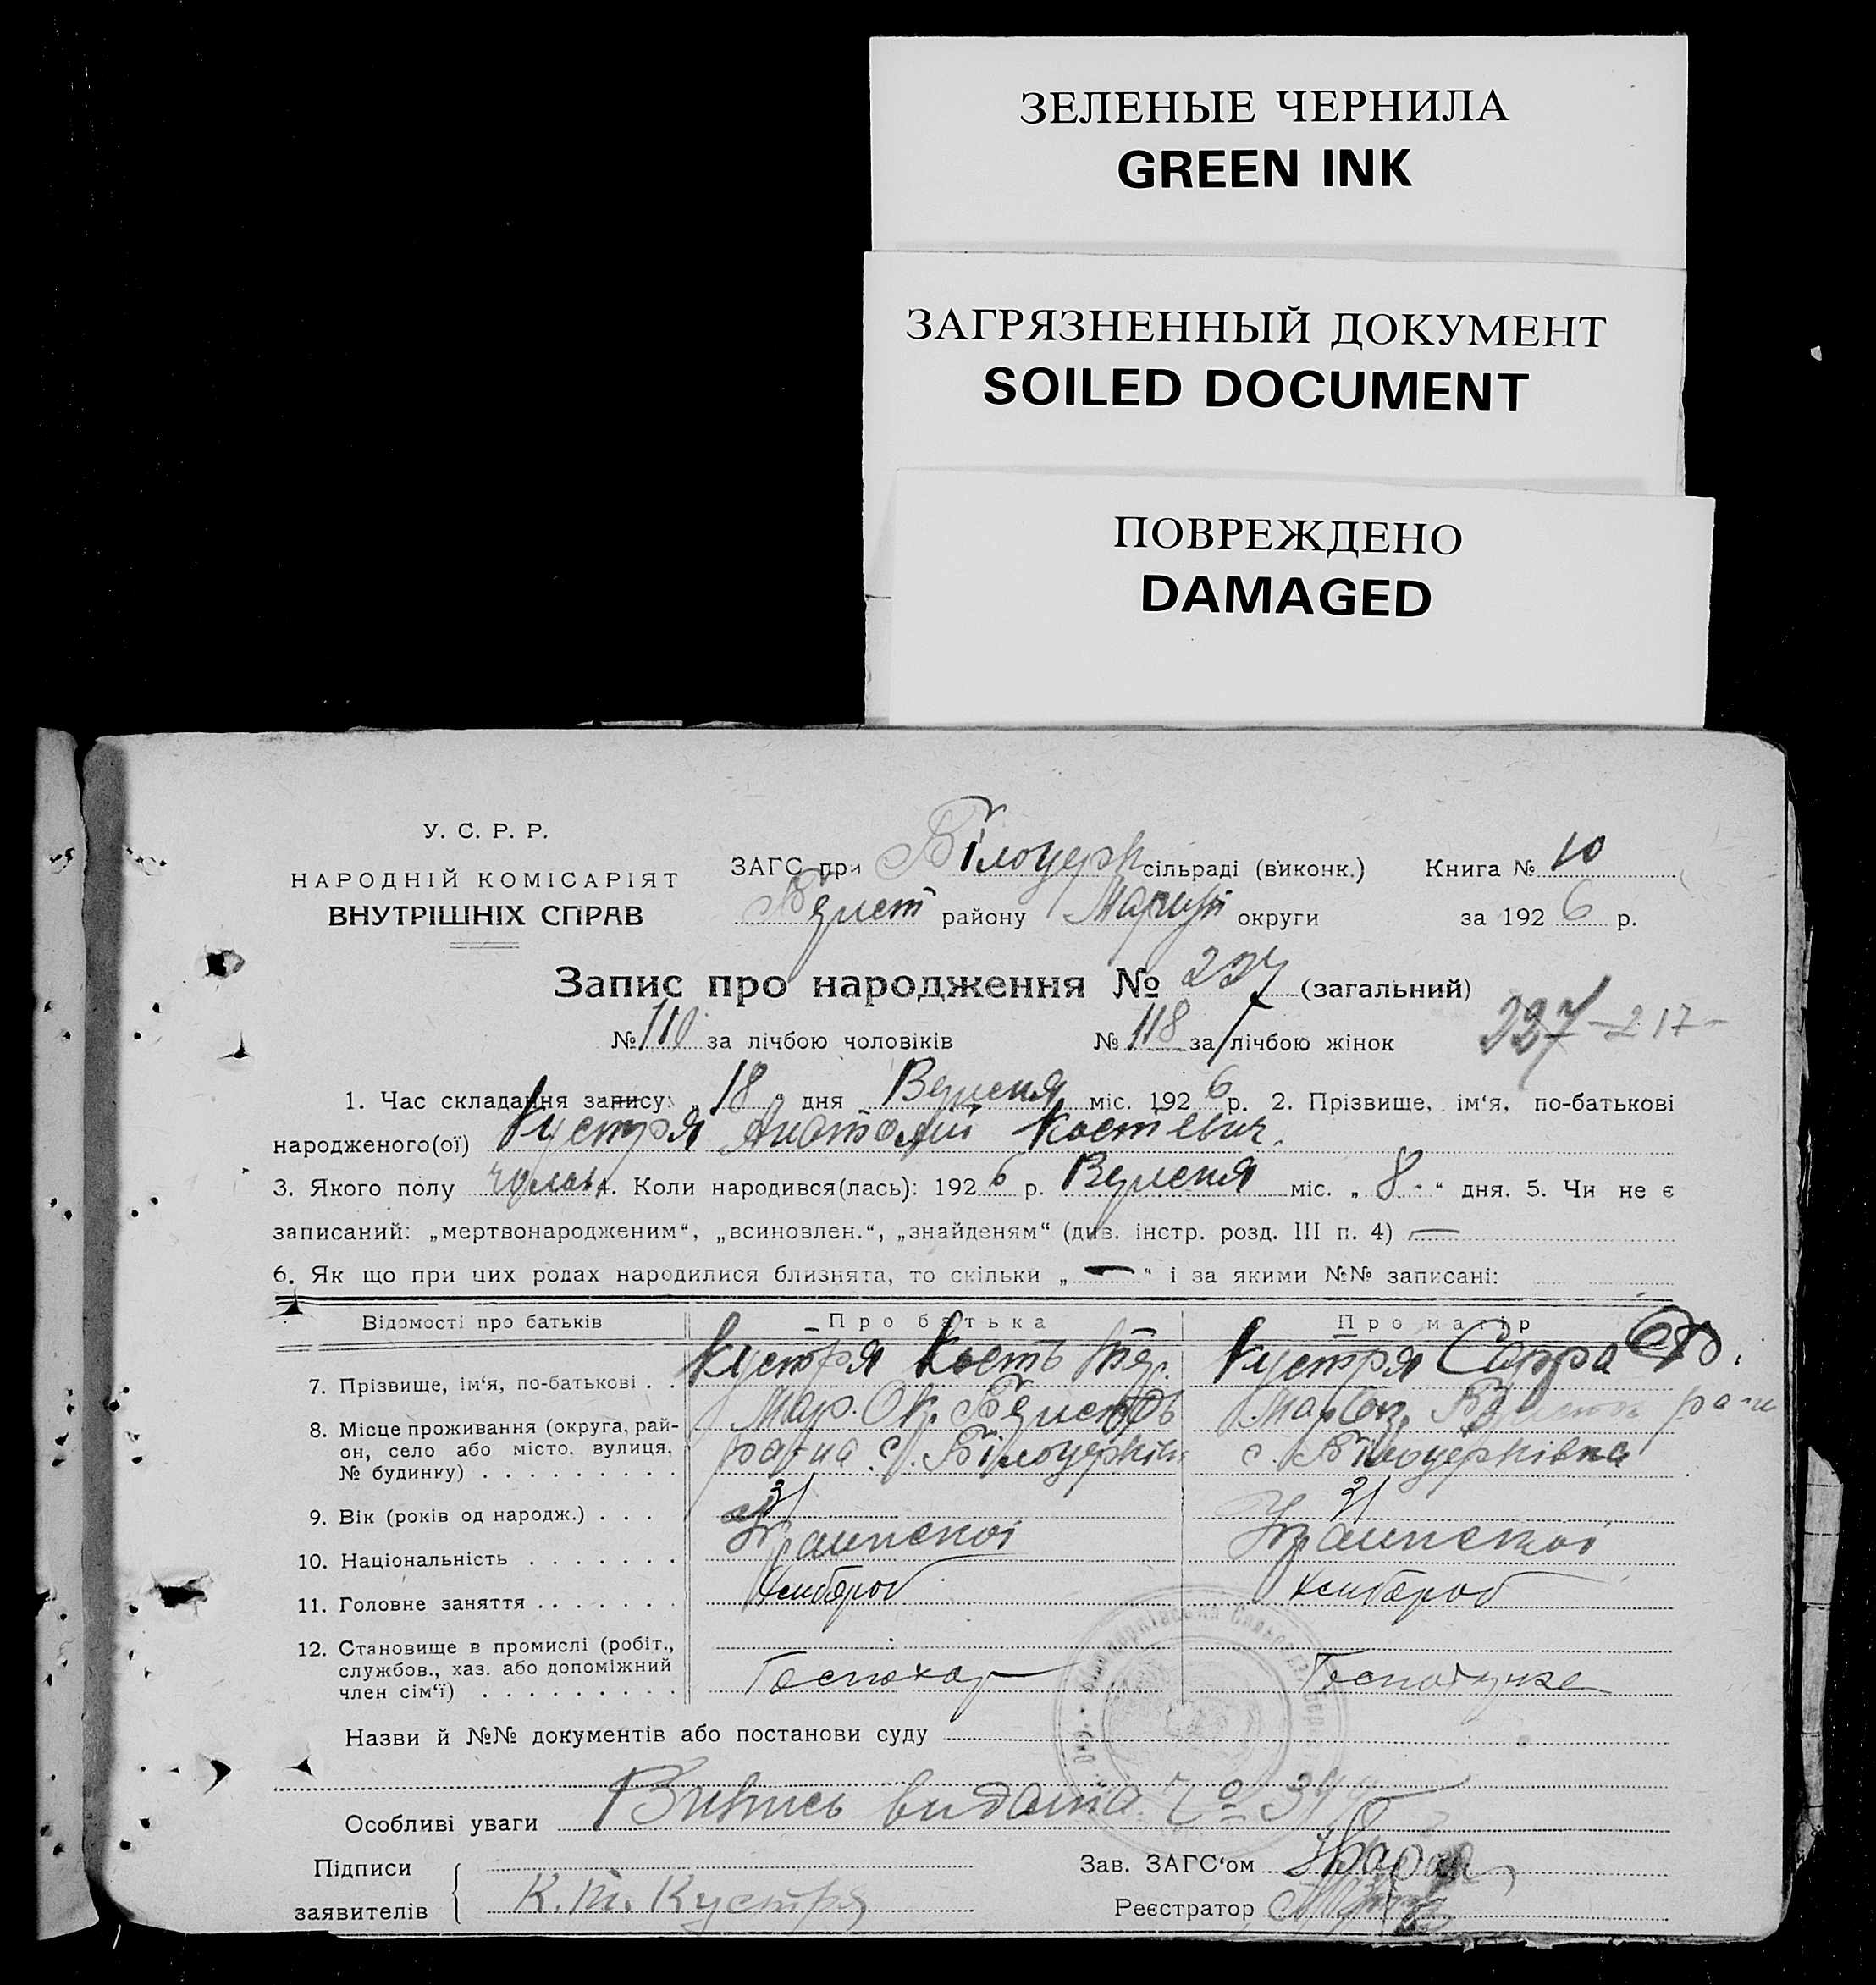 ЗЕЛЕНЫЕ ЧЕРНИЛА
GREEN INK
ЗАГРЯЗНЕННЫЙ ДОКУМЕНТ
SOILED DOCUMENT
ПОВРЕЖДЕНО
DAMAGED
У. С. Р. Р.
НАРОДНІЙ КОМІСАРІЯТ
ВНУТРІШНІХ СПРАВ
ЗАГС при Білоцерк сільраді (виконк.) Книга № 10
району Маріуп округи за 1926 р.
Запис про народження № 227 (загальний)
№ 110 за лічбою чоловіків № 118 за лічбою жінок 227 - 217 -
1. Час складання запису: „ 18 " дня Вересня міс. 1926 р. 2. Прізвище, ім'я, по-батькові
народженого(ої) Кустря Анатолій Костєвич.
3. Якого полу чолов. 4. Коли народився(лась): 1926 р. Вересня міс. „ 8 " дня. 5. Чи не є
записаний: „мертвонародженим", „всиновлен.", „знайденям" (див. інстр. розд. III п. 4) —
6. Як що при цих родах народилися близнята, то скільки „ — " і за якими №№ записані:
Відомості про батьків Про батька Про матір
7. Прізвище, ім'я, по-батькові . . Кустря Кость Кустря
8. Місце проживання (округа, рай- Мар. Ок. Мар Ок.
он, село або місто, вулиця, ра-на с. Білоцерківк с. Білоцерківка
№ будинку) . . . . . . . . .
9. Вік (років од народж.) . . . 31 21
10. Національність . . . . . . . Украинскої Украинскої
11. Головне заняття . . . . . . . Хлибороб Хлибороб
12. Становище в промислі (робіт.,
службов., хаз. або допоміжний Господар
член сім'ї) . . . . . . . . .
Назви й №№ документів або постанови суду
Особливі уваги Випись видана
Підписи Зав. ЗАГС'ом
заявителів К. Т. Кустря Реєстратор